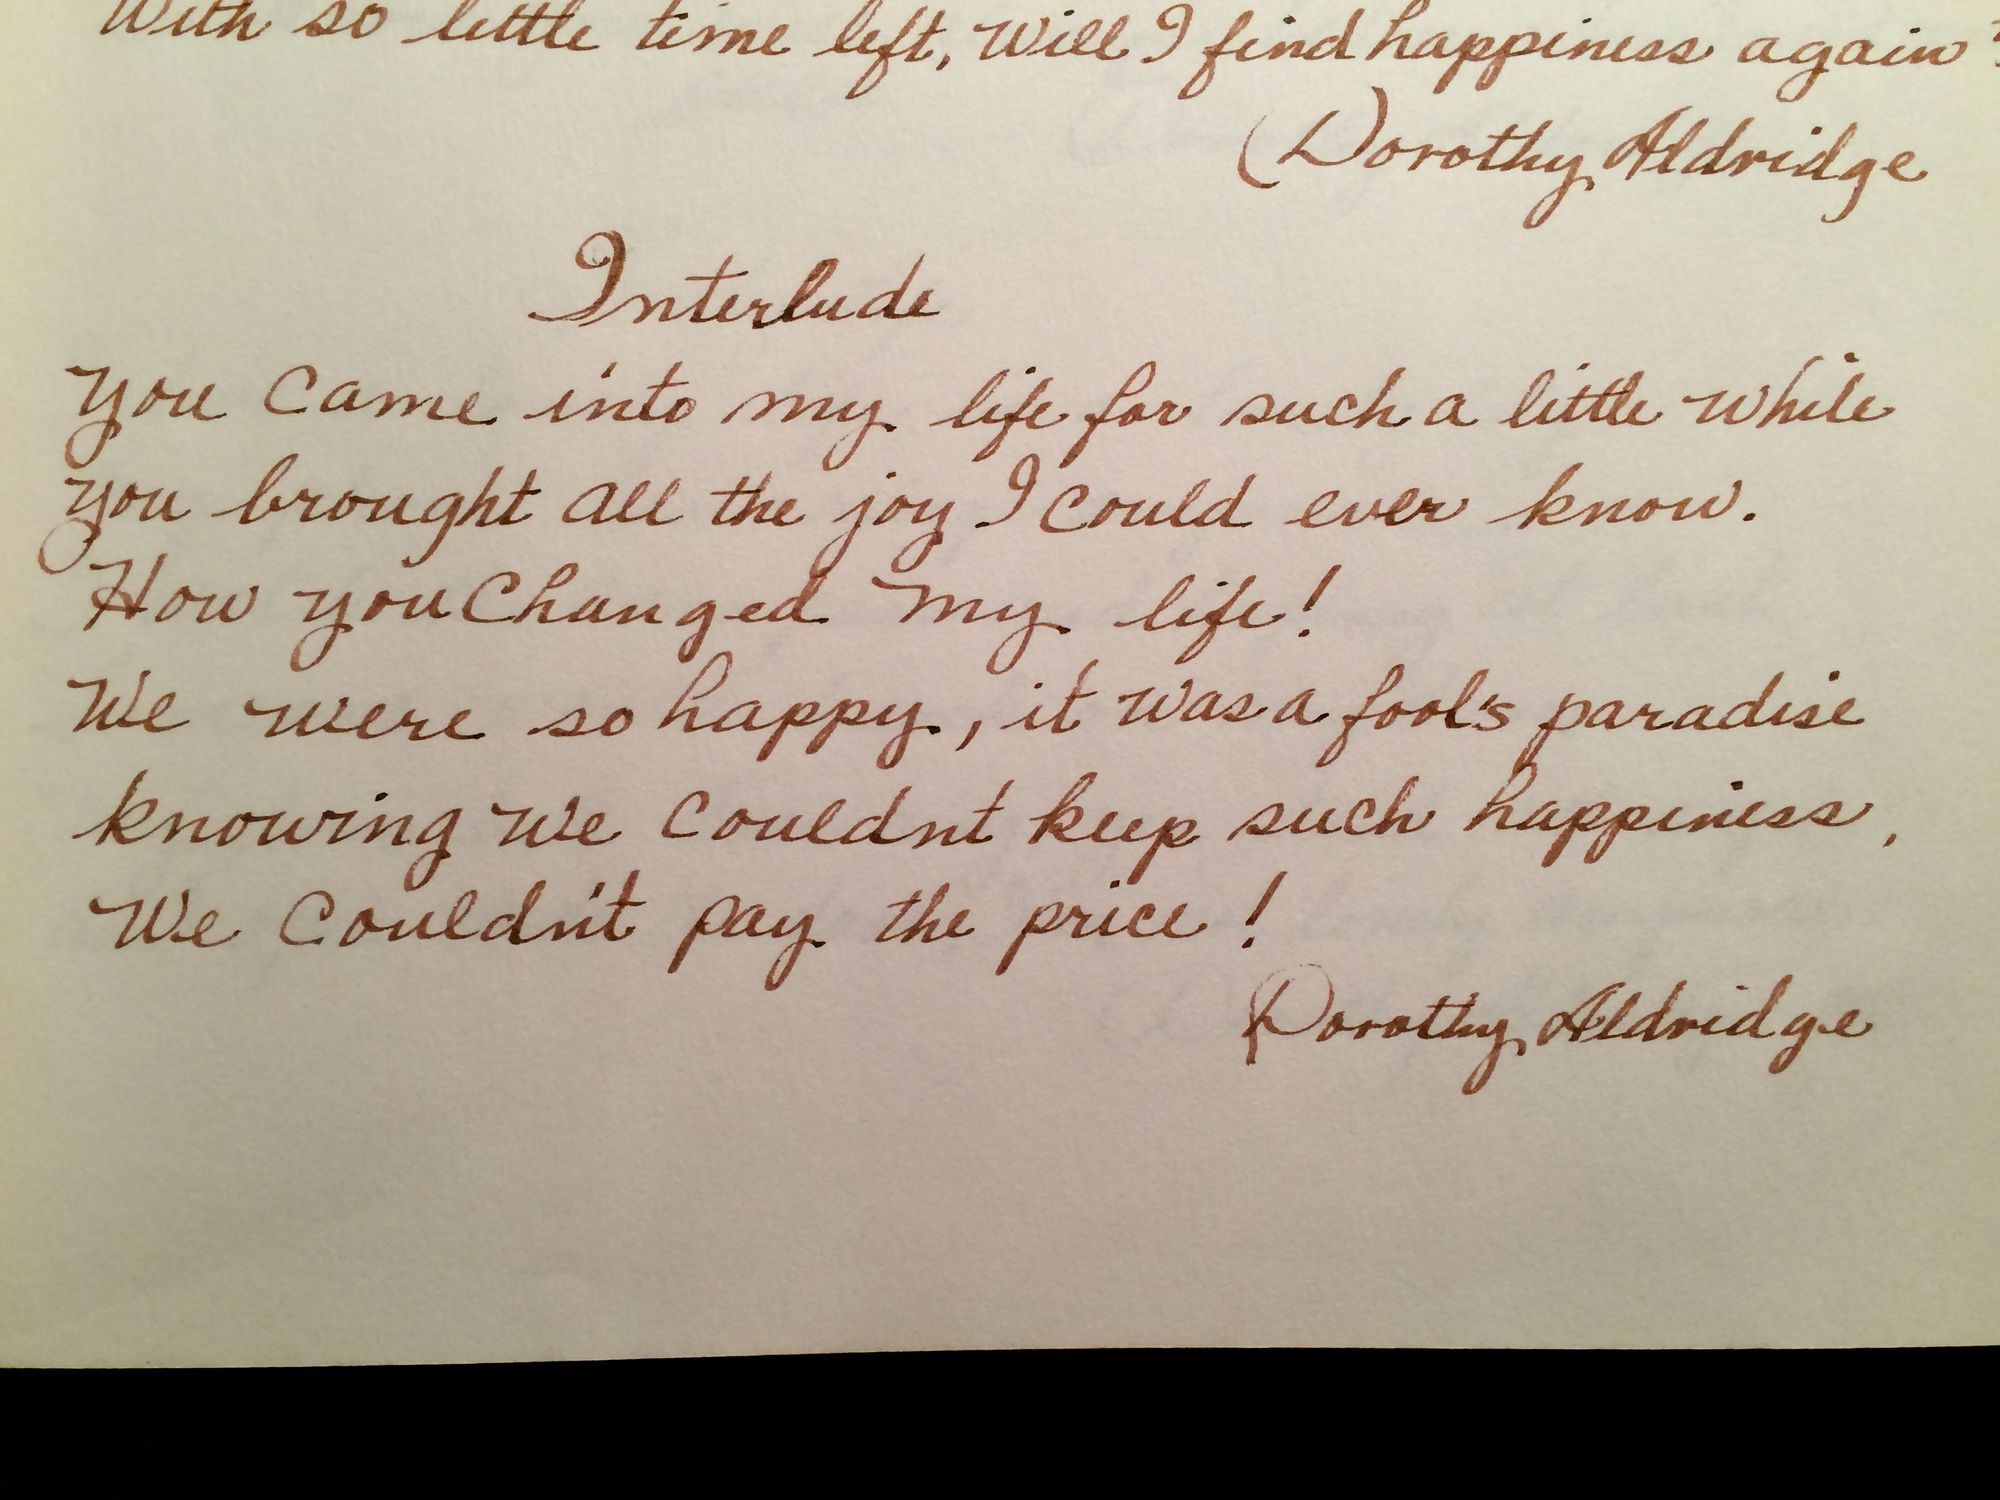 With so little time left, Will I find happiness again?
(Dorothy Aldridge
Interlude
You came into my life for such a little while
you brought all the joy I could ever know.
How you Changed my life!
We were so happy, it was a fool's paradise
knowing we couldnt keep such happiness,
We couldn't pay the price!
Dorothy Aldridge